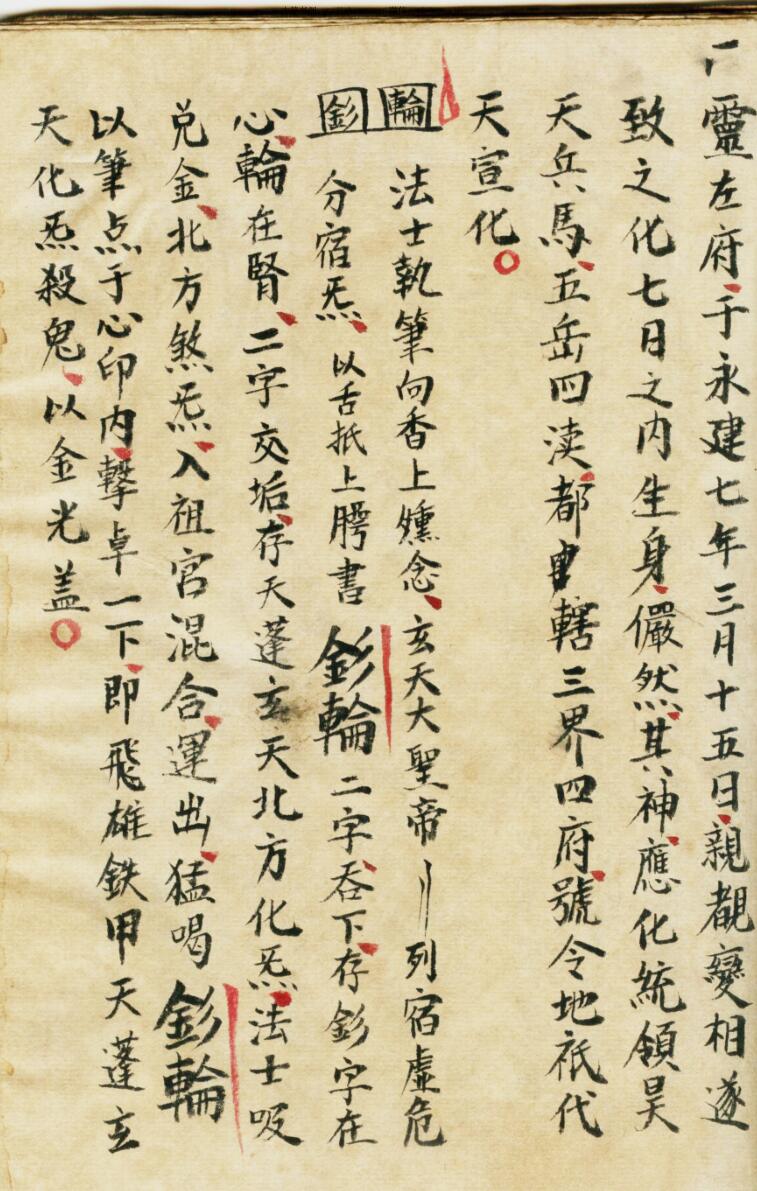 靈左府于永建七年三月十五日親覩變相遂
致之化七日之内生身儼然其神應化統領昊
天兵馬五岳四渎都曳轄三界四府號令地祇代
天宣化
輪 法士執筆向香上爋念玄天大聖帝〻列宿虛危
釤 分宿炁以舌抵上腭書釤輪二字吞下存釤字在
心輪在腎二字交垢存天蓬玄天北方化炁法士吸
兌金北方煞炁入祖宫混合運出猛喝釤輪
以筆点于心印内擊卓一下即飛雄鉄甲天蓬玄
天化炁殺鬼以金光盖